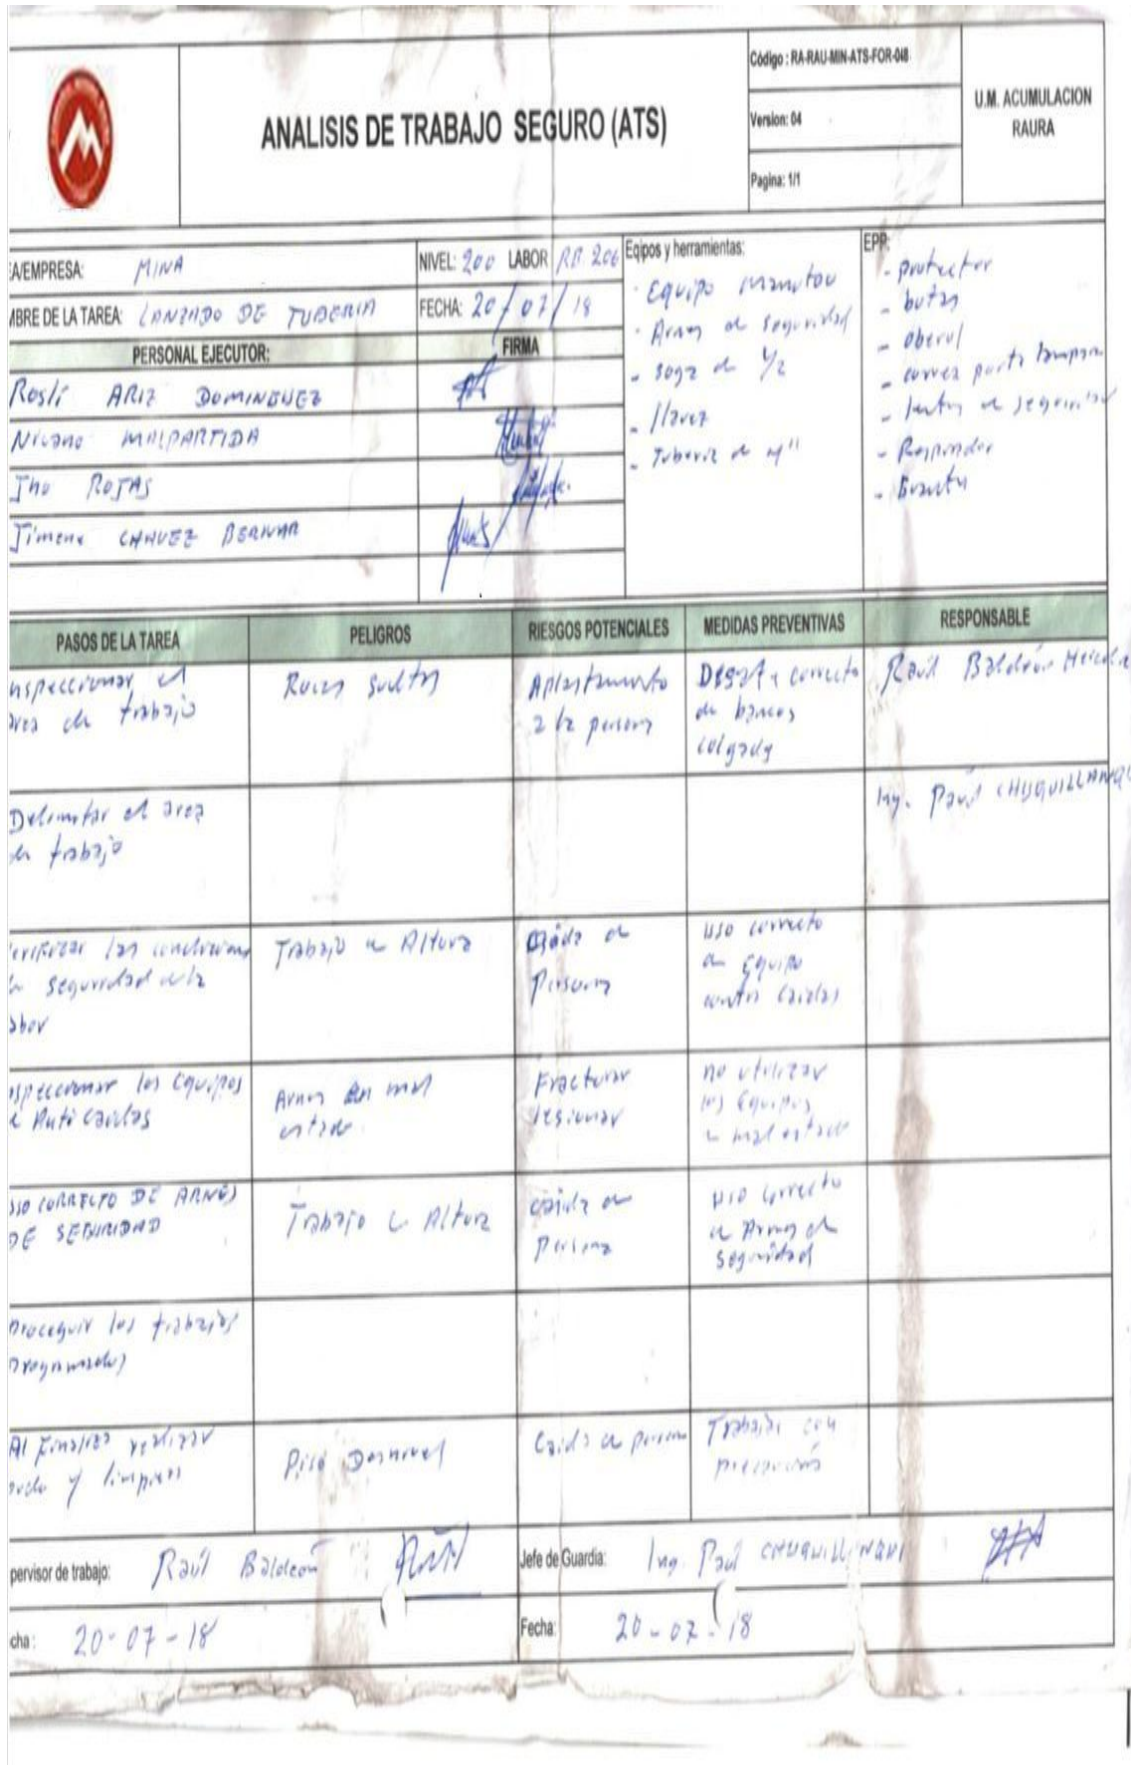 ANALISIS DE TRABAJO SEGURO (ATS)
Código : RA-RAU-MIN-ATS-FOR-048
Version: 04
Pagina: 1/1
U.M. ACUMULACION
RAURA
A/EMPRESA: MINA
NIVEL: 200 LABOR RB 206
MBRE DE LA TAREA: LANZADO DE TUBERIA
FECHA: 20/07/18
PERSONAL EJECUTOR:
FIRMA
Roslí ARIZ DOMINGUEZ
MALPARTIDA
Jho ROJAS
Jimena CHAVEZ BERNAR
Eqipos y herramientas:
· Equipo manitou
· Arnes de seguridad
- soga de 1/2
- llaves
- Tuberia de 4"
EPP:
- protector
- botas
- oberol
- correa porta lampara
- lentes de seguridad
- Respirador
- Guantes
PASOS DE LA TAREA
PELIGROS
RIESGOS POTENCIALES
MEDIDAS PREVENTIVAS
RESPONSABLE
nspeccionar el
area de trabajo
Rocas sueltas
Aplastamiento
a la persona
Desate correcto
de bancos
colgados
Raúl Baldeón
Delimitar el area
de trabajo
Ing. Paúl CHUQUILLANQU
verificar las condiciones
de seguridad de la
abor
Trabajo en Altura
Caida de
persona
uso correcto
de equipo
contra caidas
nspeccionar los equipos
Anti caidas
Arnes en mal
estado
Fracturar
lesionar
no utilizar
los equipos
en mal estado
uso CORRECTO DE ARNÉS
DE SEGURIDAD
Trabajo en Altura
caida de
persona
uso correcto
de Arnes de
seguridad
Proceguir los trabajos
programados
Al finalizar realizar
orden y limpieza
Piso Desnivel
Caida de persona
Trabajar con
precaución
pervisor de trabajo: Raúl Baldeón
Jefe de Guardia: Ing. Paúl CHUQUILLANQUI
cha : 20-07-18
Fecha: 20-07-18